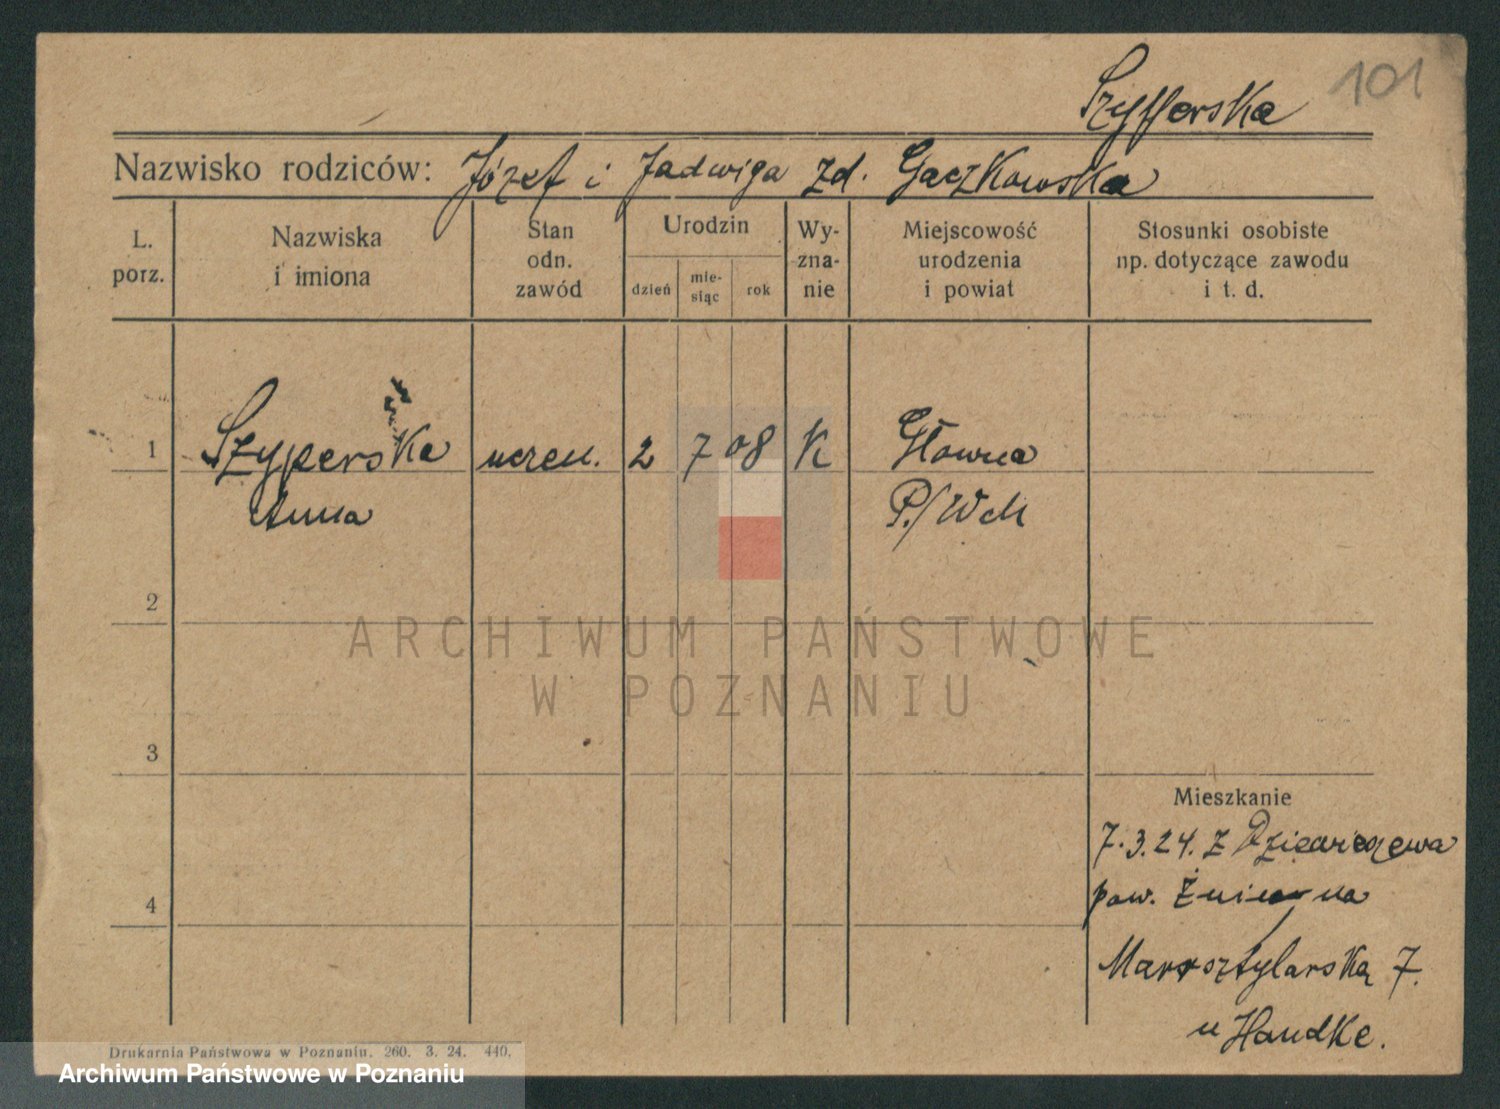 101
Szyfferska
Nazwisko rodziców: Józef i Jadwiga zd. Gaczkowska
L. porz.
Nazwiska i imiona
Stan odn. zawód
Urodzin
dzień
mie-
siąc
rok
Wy-
zna-
nie
Miejscowość urodzenia i powiat
Stosunki osobiste np. dotyczące zawodu i t. d.
1 Szyperska uczen. 2 7 08 K Główna
Anna P./Wch
2
3
4
Mieszkanie
7.3.24. z
pow. Żnin na
Marsztylarską 7.
u Handke.
ARCHIWUM PAŃSTWOWE
W POZNANIU
Drukarnia Państwowa w Poznaniu. 260. 3. 24. 440.
Archiwum Państwowe w Poznaniu